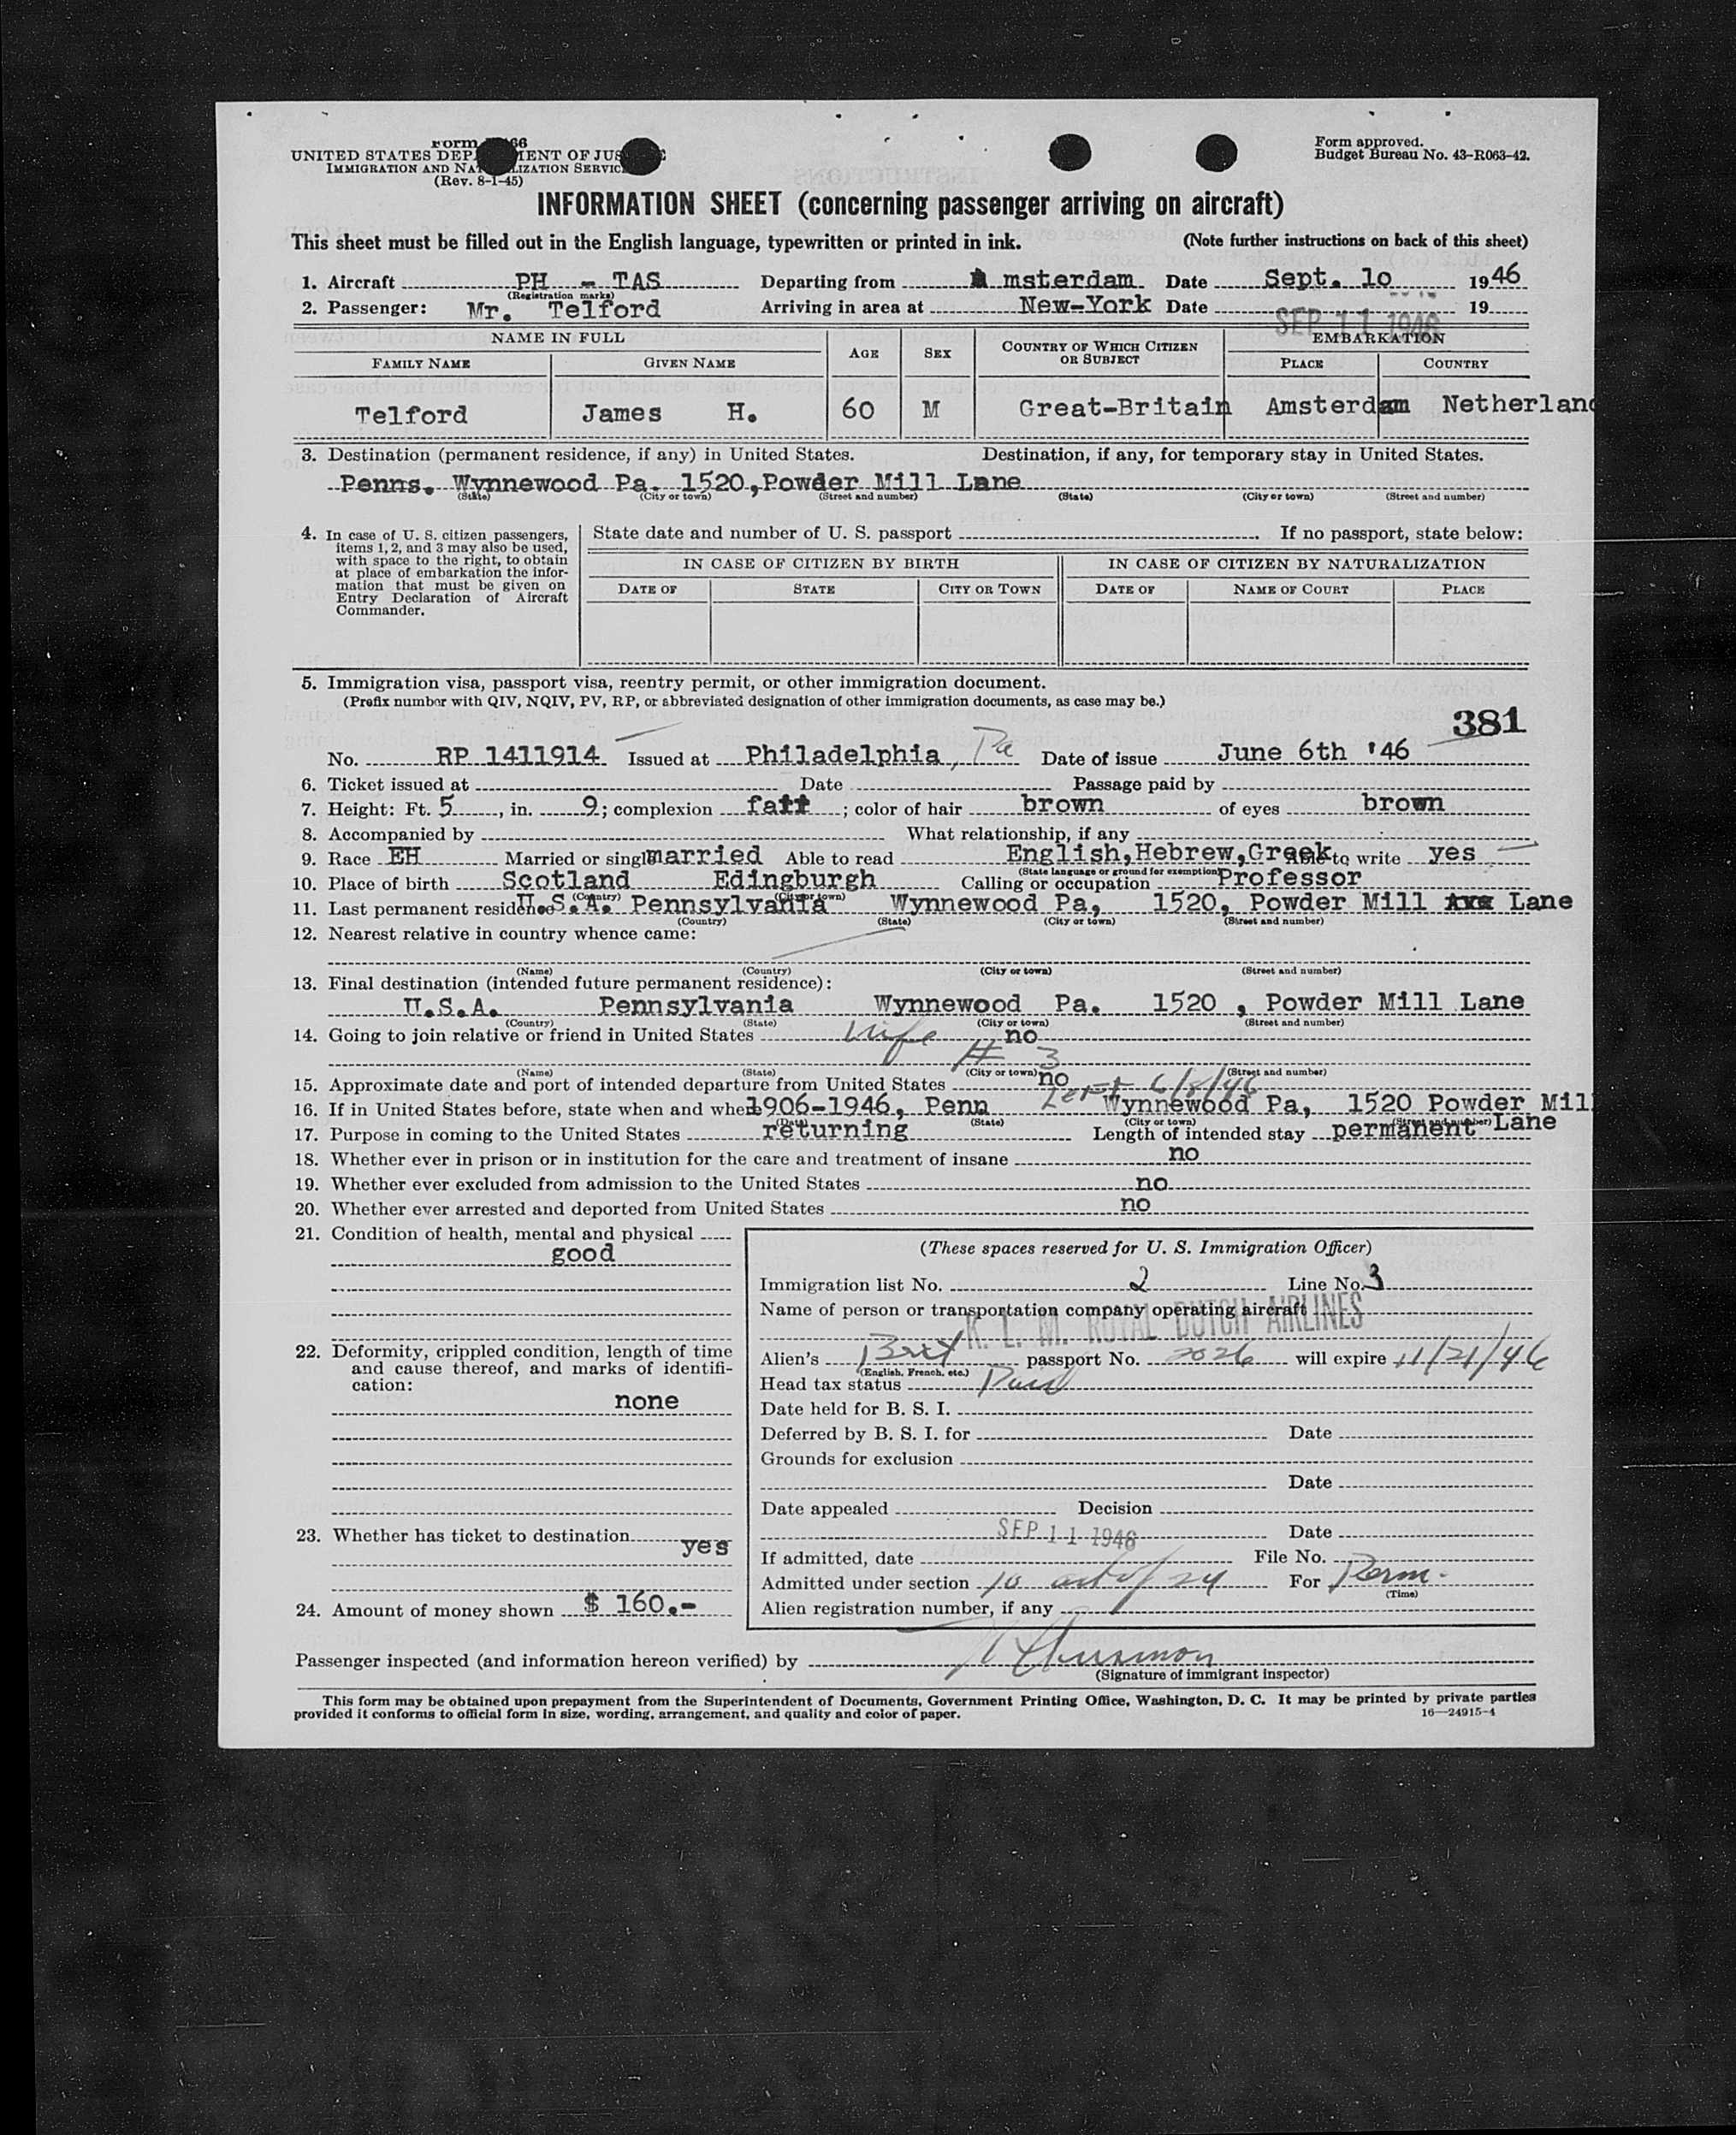 Form 66
UNITED STATES DEP MENT OF JUS
IMMIGRATION AND NA LIZATION SERVIC
(Rev. 8-1-45)
Form approved.
Budget Bureau No. 43-R063-42.
INFORMATION SHEET (concerning passenger arriving on aircraft)
This sheet must be filled out in the English language, typewritten or printed in ink. (Note further instructions on back of this sheet)
1. Aircraft PH - TAS Departing from Amsterdam Date Sept. 10 1946
(Registration marks)
2. Passenger: Mr. Telford Arriving in area at New-York Date SEP 11 1946 19
NAME IN FULL AGE SEX COUNTRY OF WHICH CITIZEN OR SUBJECT EMBARKATION
FAMILY NAME GIVEN NAME PLACE COUNTRY
Telford James H. 60 M Great-Britain Amsterdam Netherland
3. Destination (permanent residence, if any) in United States. Destination, if any, for temporary stay in United States.
Penns. Wynnewood Pa. 1520, Powder Mill Lane
(State) (City or town) (Street and number) (State) (City or town) (Street and number)
4. In case of U. S. citizen passengers, items 1, 2, and 3 may also be used, with space to the right, to obtain at place of embarkation the information that must be given on Entry Declaration of Aircraft Commander.
State date and number of U. S. passport If no passport, state below:
IN CASE OF CITIZEN BY BIRTH IN CASE OF CITIZEN BY NATURALIZATION
DATE OF STATE CITY OR TOWN DATE OF NAME OF COURT PLACE
5. Immigration visa, passport visa, reentry permit, or other immigration document.
(Prefix number with QIV, NQIV, PV, RP, or abbreviated designation of other immigration documents, as case may be.)
381
No. RP 1411914 Issued at Philadelphia, Pa Date of issue June 6th '46
6. Ticket issued at Date Passage paid by
7. Height: Ft. 5, in. 9; complexion fair; color of hair brown of eyes brown
8. Accompanied by What relationship, if any
9. Race EH Married or single married Able to read English, Hebrew, Greek Able to write yes
(State language or ground for exemption)
10. Place of birth Scotland Edingburgh Calling or occupation Professor
(Country) (City or town)
11. Last permanent residence U.S.A. Pennsylvania Wynnewood Pa, 1520, Powder Mill Ave Lane
(Country) (State) (City or town) (Street and number)
12. Nearest relative in country whence came:
(Name) (Country) (City or town) (Street and number)
13. Final destination (intended future permanent residence):
U.S.A. Pennsylvania Wynnewood Pa. 1520 , Powder Mill Lane
(Country) (State) (City or town) (Street and number)
14. Going to join relative or friend in United States wife no
# 3
(Name) (State) (City or town) (Street and number)
15. Approximate date and port of intended departure from United States no
Left 6/8/46
16. If in United States before, state when and where 1906-1946, Penn Wynnewood Pa, 1520 Powder Mil
(Date) (State) (City or town) (Street and number) Lane
17. Purpose in coming to the United States returning Length of intended stay permanent
18. Whether ever in prison or in institution for the care and treatment of insane no
19. Whether ever excluded from admission to the United States no
20. Whether ever arrested and deported from United States no
21. Condition of health, mental and physical
good
22. Deformity, crippled condition, length of time and cause thereof, and marks of identification:
none
23. Whether has ticket to destination yes
24. Amount of money shown $ 160.-
(These spaces reserved for U. S. Immigration Officer)
Immigration list No. 2 Line No. 3
Name of person or transportation company operating aircraft
K. L. M. ROYAL DUTCH AIRLINES
Alien's Brit passport No. 2026 will expire 11/21/46
(English, French, etc.)
Head tax status Paid
Date held for B. S. I.
Deferred by B. S. I. for Date
Grounds for exclusion
Date
Date appealed Decision
SEP 11 1946 Date
If admitted, date File No.
Admitted under section 10 act of 24 For Perm.
(Time)
Alien registration number, if any
Passenger inspected (and information hereon verified) by
(Signature of immigrant inspector)
This form may be obtained upon prepayment from the Superintendent of Documents, Government Printing Office, Washington, D. C. It may be printed by private parties
provided it conforms to official form in size, wording, arrangement, and quality and color of paper. 16—24915-4